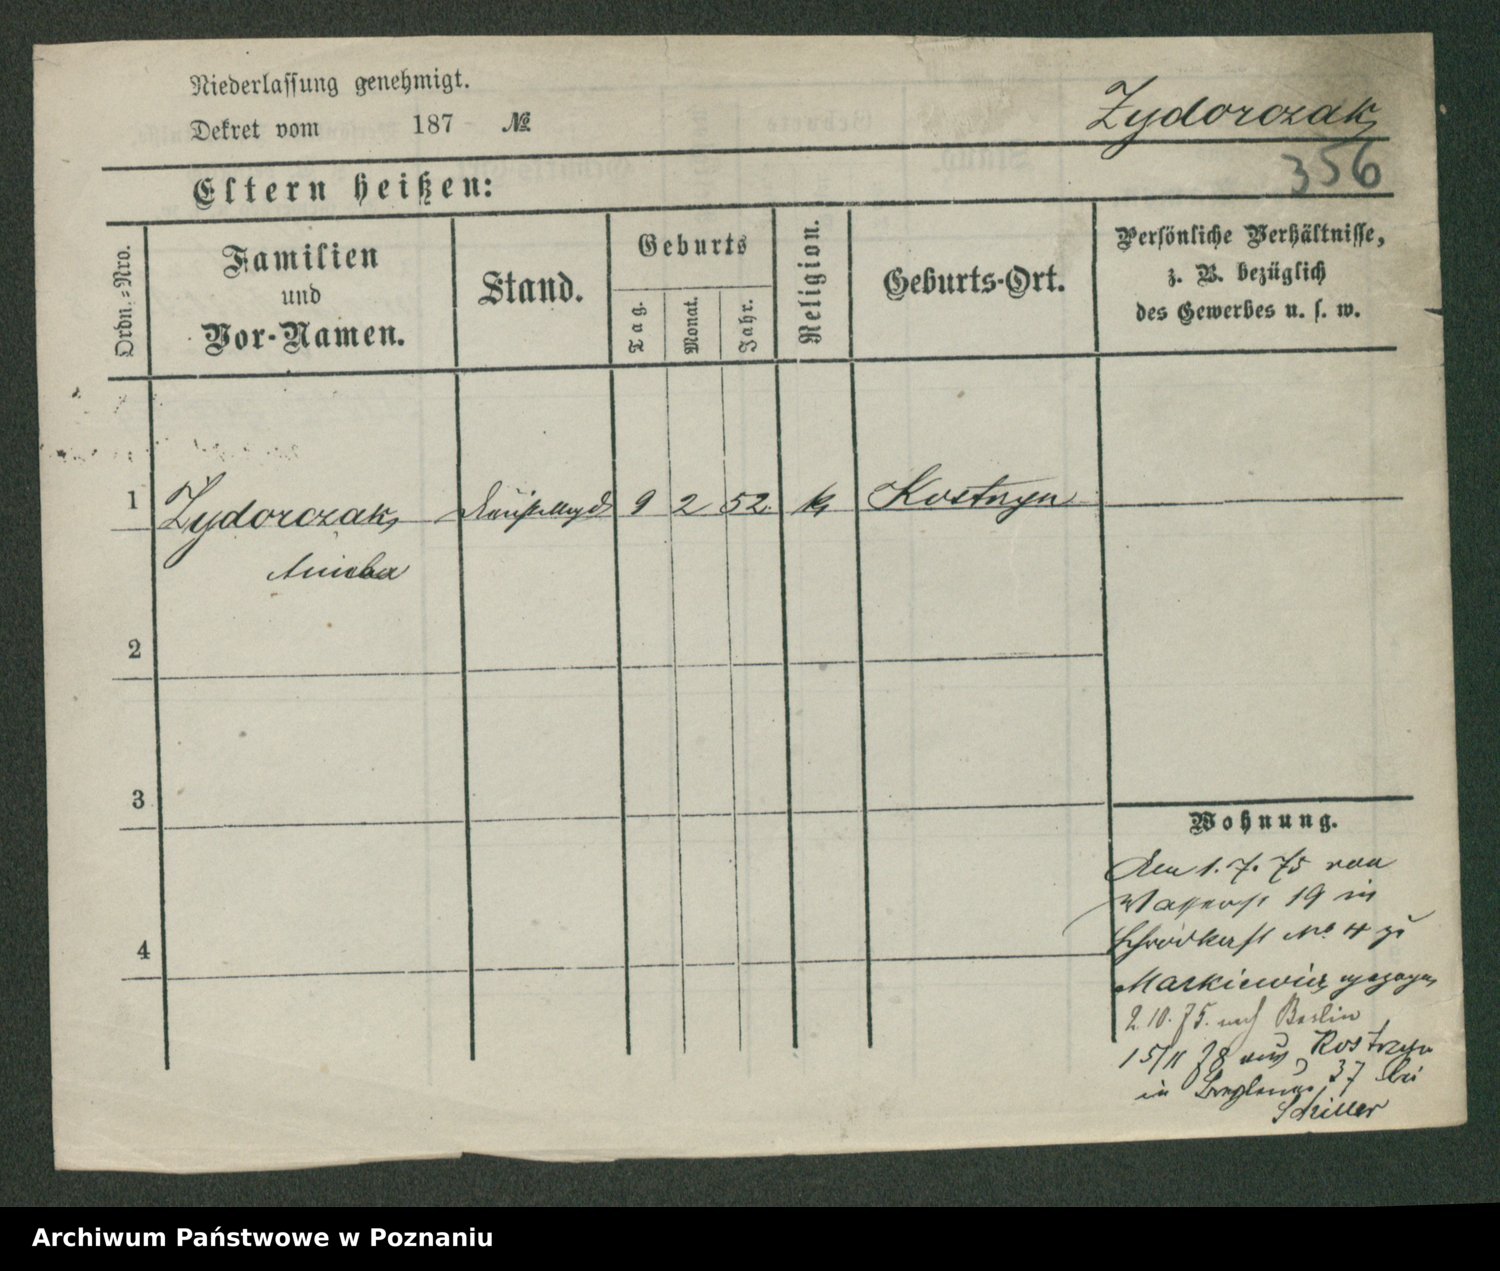 Niederlassung genehmigt.
Dekret vom 187 №
Zydorczak
356
Eltern heißen:
Ordn.-Nro.
Familien
und
Vor-Namen.
Stand.
Geburts
Tag.
Monat.
Jahr.
Religion.
Geburts-Ort.
Persönliche Verhältnisse,
z. B. bezüglich
des Gewerbes u. s. w.
1 Zydorczak 9 2 52. k Kostrzyn
2
3
4
Wohnung.
Den 1. 7. 75 von
Wasserst 19 in
No 4 zu
Markiewicz gezogen
2. 10. 75. nach Berlin
15/11 78 aus Kostrzyn
in 37 bei
Schiller
Archiwum Państwowe w Poznaniu